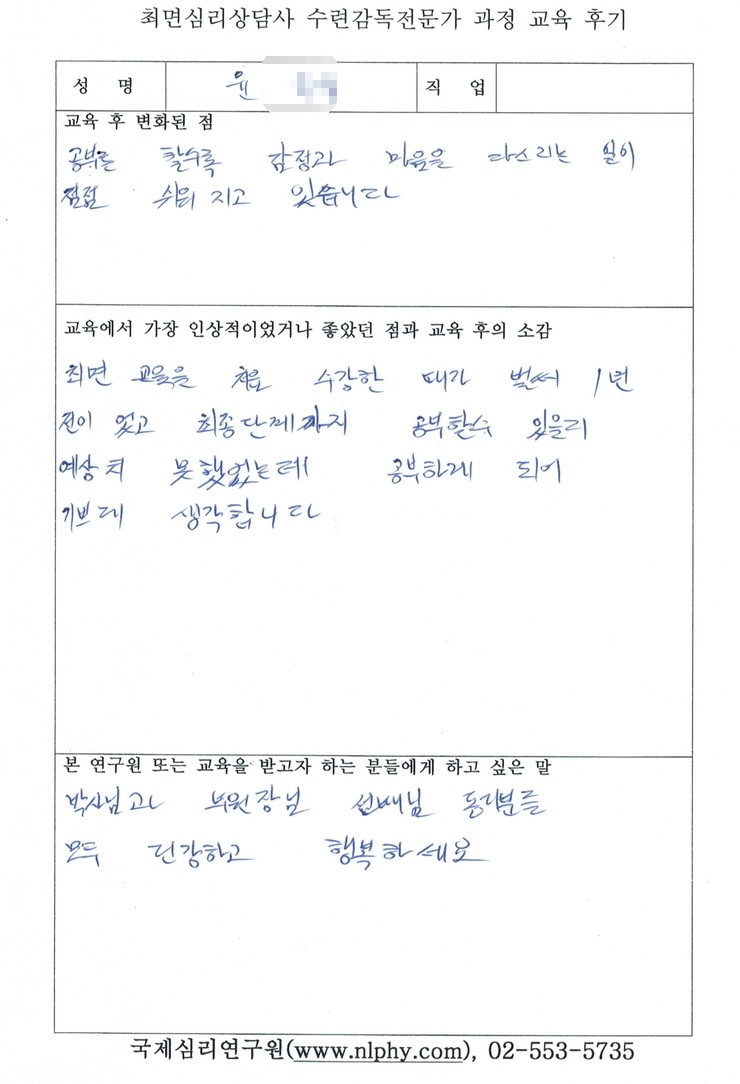 최면심리상담사 수련감독전문가 과정 교육 후기
성 명 윤 직 업
교육 후 변화된 점
공부를 할수록 감정과 마음을 다스리는 일이
점점 쉬워 지고 있습니다
교육에서 가장 인상적이었거나 좋았던 점과 교육 후의 소감
최면 교육을 처음 수강한 때가 벌써 1년
전이 었고 최종단계까지 공부할수 있을리
예상치 못했었는데 공부하게 되어
기쁘게 생각합니다
본 연구원 또는 교육을 받고자 하는 분들에게 하고 싶은 말
박사님과 부원장님 선배님 동기분들
모두 건강하고 행복하세요
국제심리연구원(www.nlphy.com), 02-553-5735